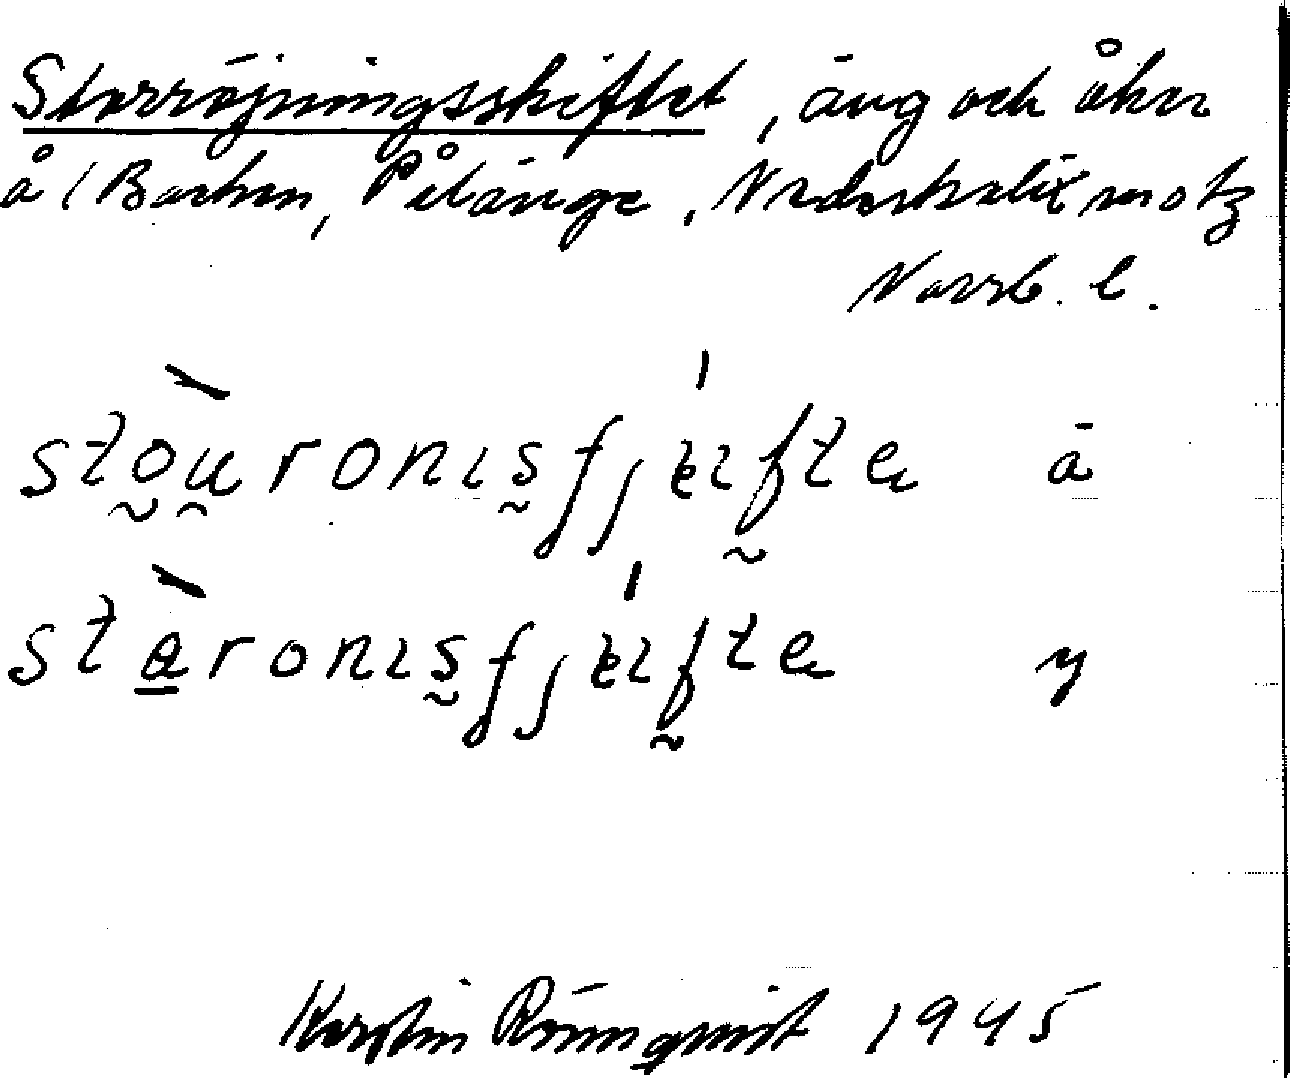 Storröjningsskiftet, äng och åker
å (Backen, Pålänge, Nederkalix motz
Norrb. l.
stou̯ronɪsʃʃkɪfte ä
stɐronɪsʃʃkɪfte y
Kerstin Rönnqvist 1945